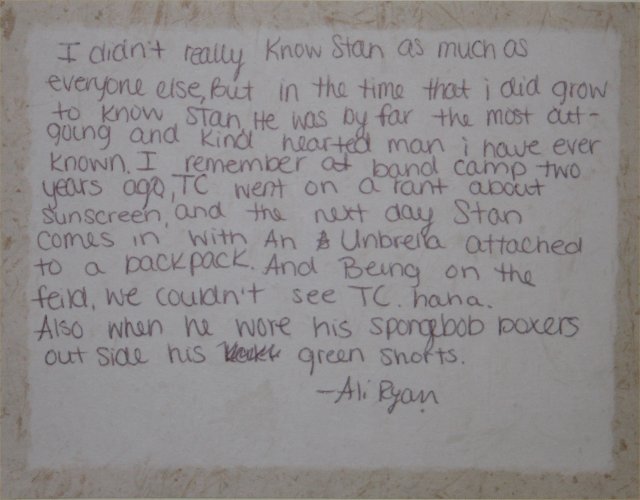 I didn't really know Stan as much as
everyone else, But in the time that i did grow
to know Stan, He was by far the most out-
going and kind hearted man i have ever
known. I remember at band camp two
years ago, TC went on a rant about
sunscreen, and the next day Stan
comes in with An Unbrella attached
to a backpack. And Being on the
feild, we couldn't see TC. haha.
Also when he wore his spongebob boxers
out side his green shorts.
-Ali Ryan